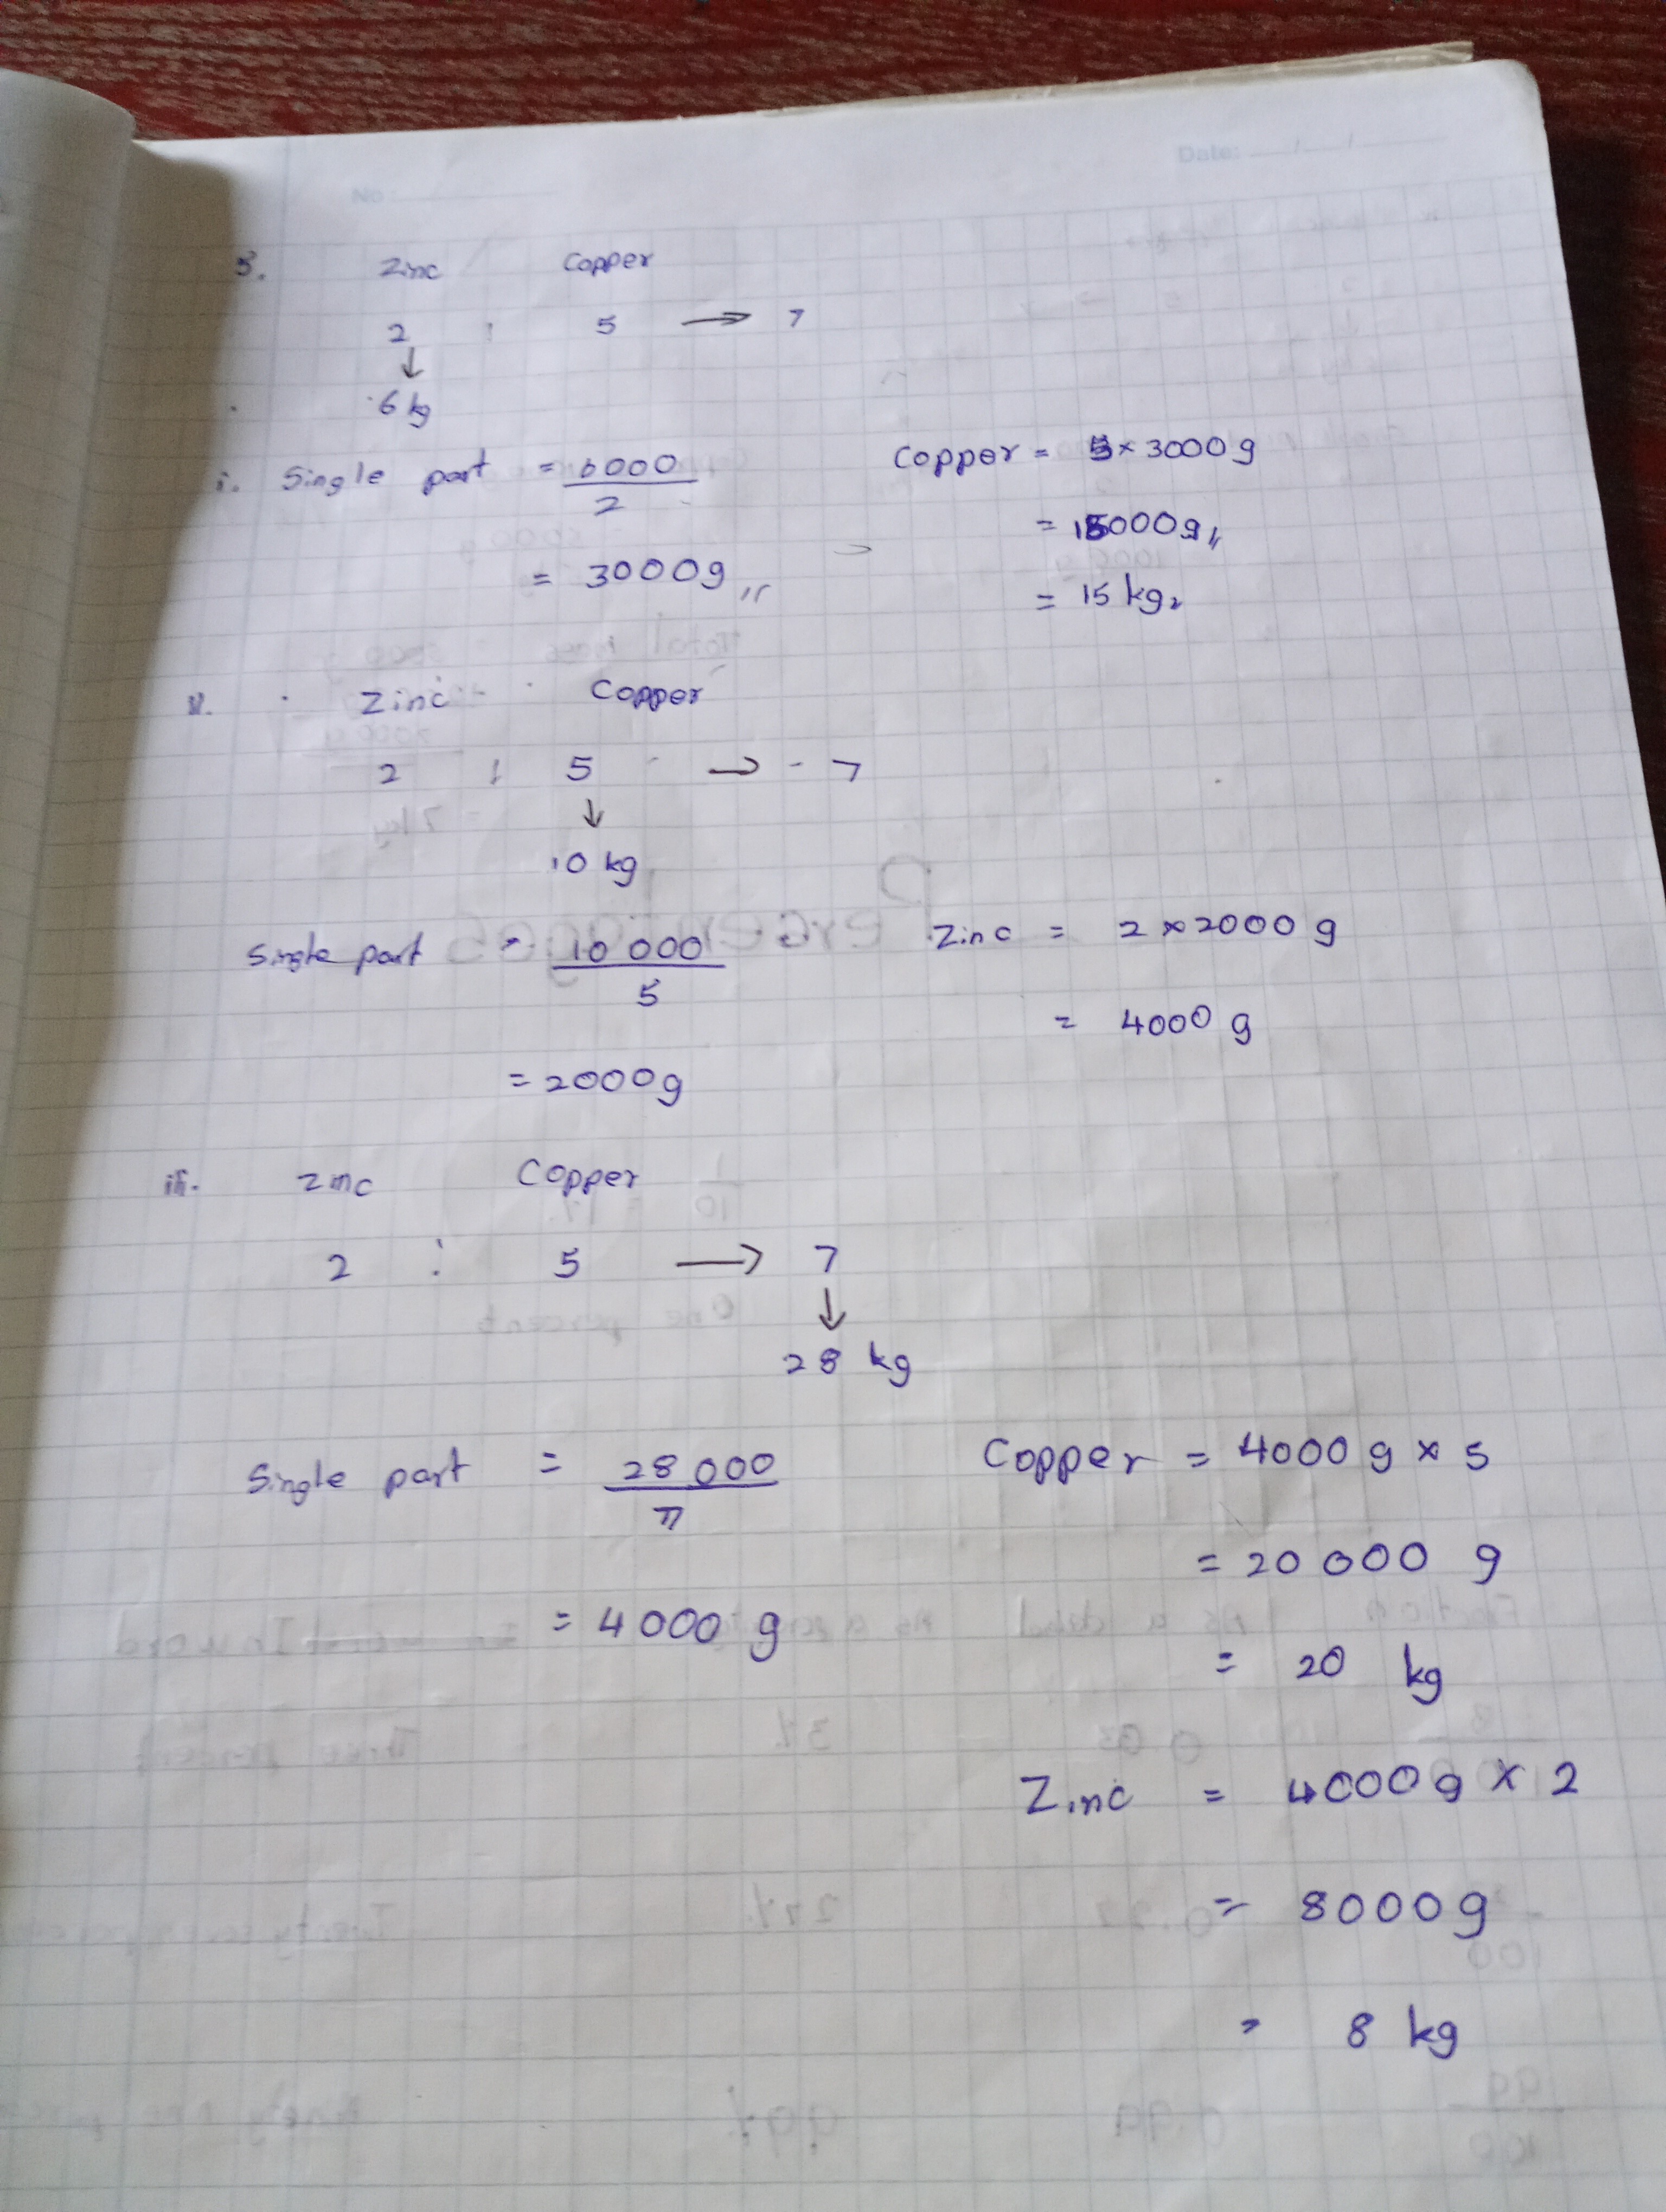 No:
Date: / /
3. Zinc Copper
2 : 5 → 7
↓
6 kg
i. Single part = 6000
2
= 3000g
Copper = 5 × 3000 g
= 15000g
= 15 kg
ii. Zinc : Copper
2 : 5 → 7
↓
10 kg
Single part = 10 000
5
= 2000g
Zinc = 2 × 2000 g
= 4000 g
iii. Zinc Copper
2 : 5 → 7
↓
28 kg
Single part = 28 000
7
= 4000 g
Copper = 4000 g × 5
= 20 000 g
= 20 kg
Zinc = 4000g × 2
= 8000g
= 8 kg